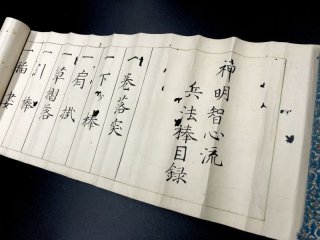 神明智心流
兵法棒目録
一巻落突
一下棒
一肩掛
一草摺落
一引棒
一